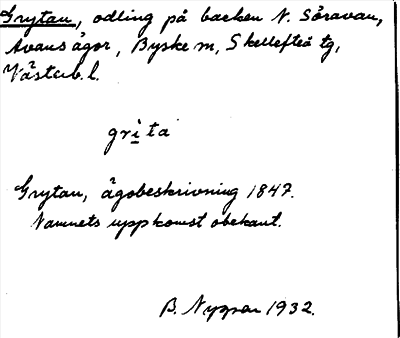 Grytan, odling på backen N. Söravan,
Avans ägor, Byske m, Skellefteå tg,
Västerb. l.
gri̱ta
Grytan, ägobeskrivning 1847.
Namnets uppkomst obekant.
B. 1932.